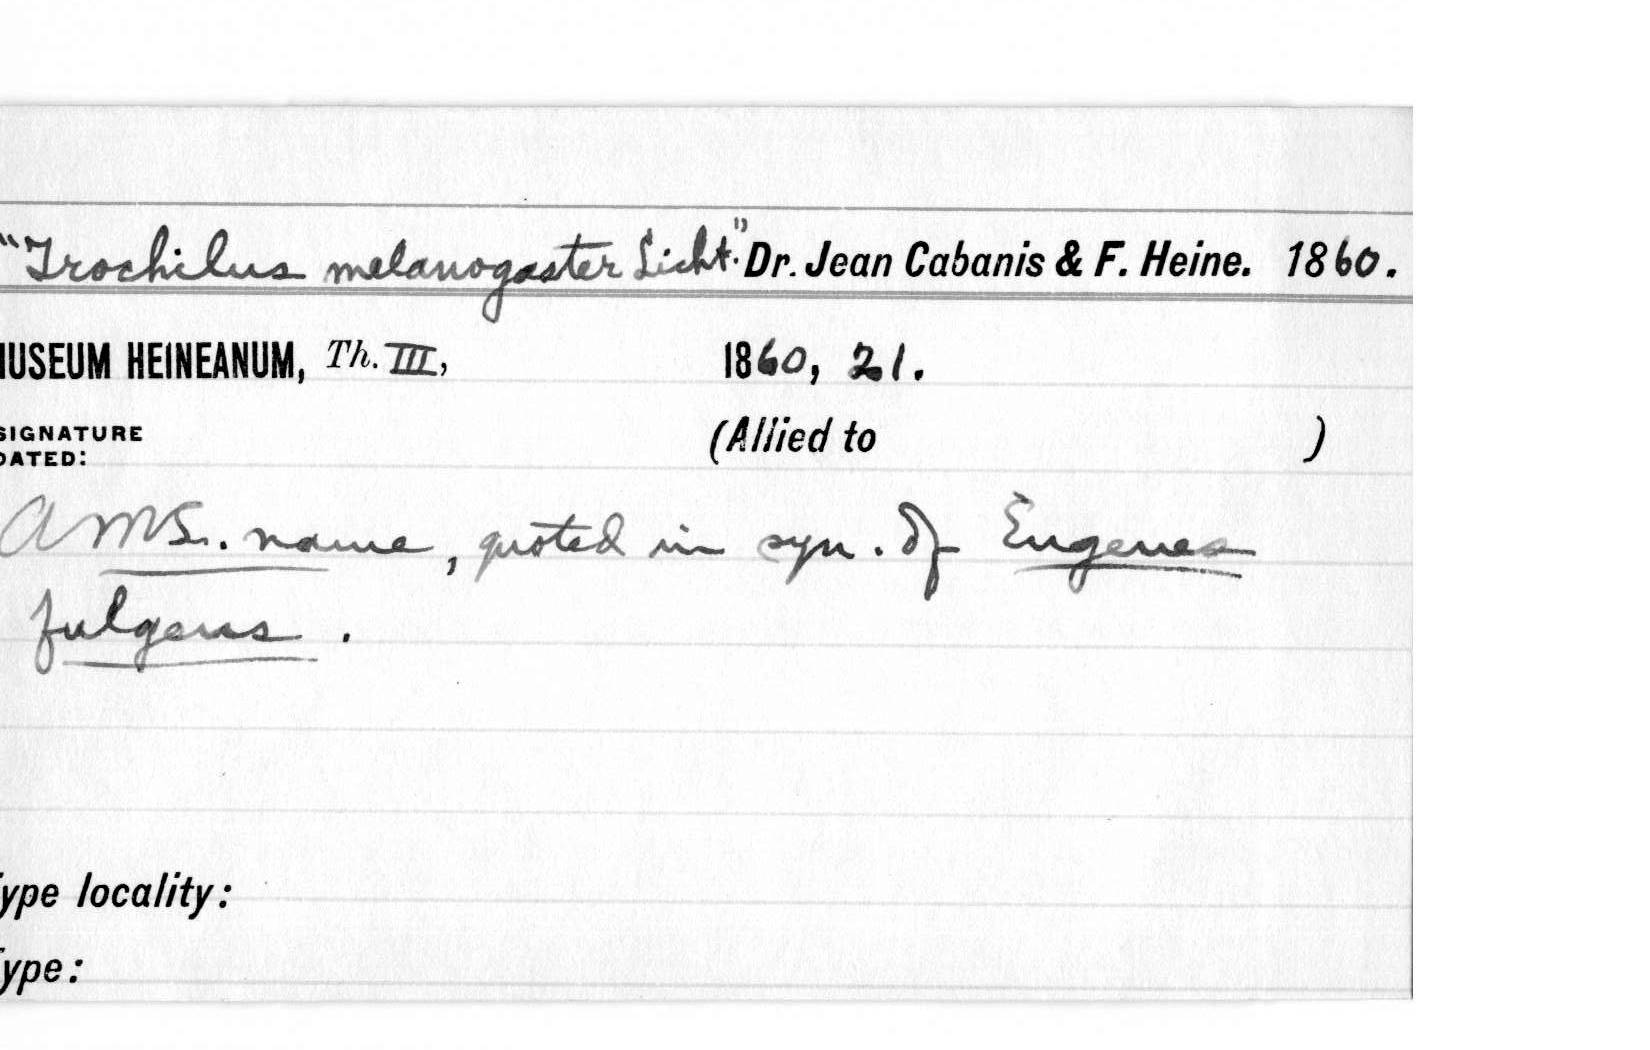 "Trochilus melanogaster Licht." Dr. Jean Cabanis & F. Heine. 1860.
MUSEUM HEINEANUM, Th. III, 1860, 21.
SIGNATURE
DATED:
(Allied to )
A MS. name, quoted in syn. of Eugenes
fulgens.
Type locality:
Type: